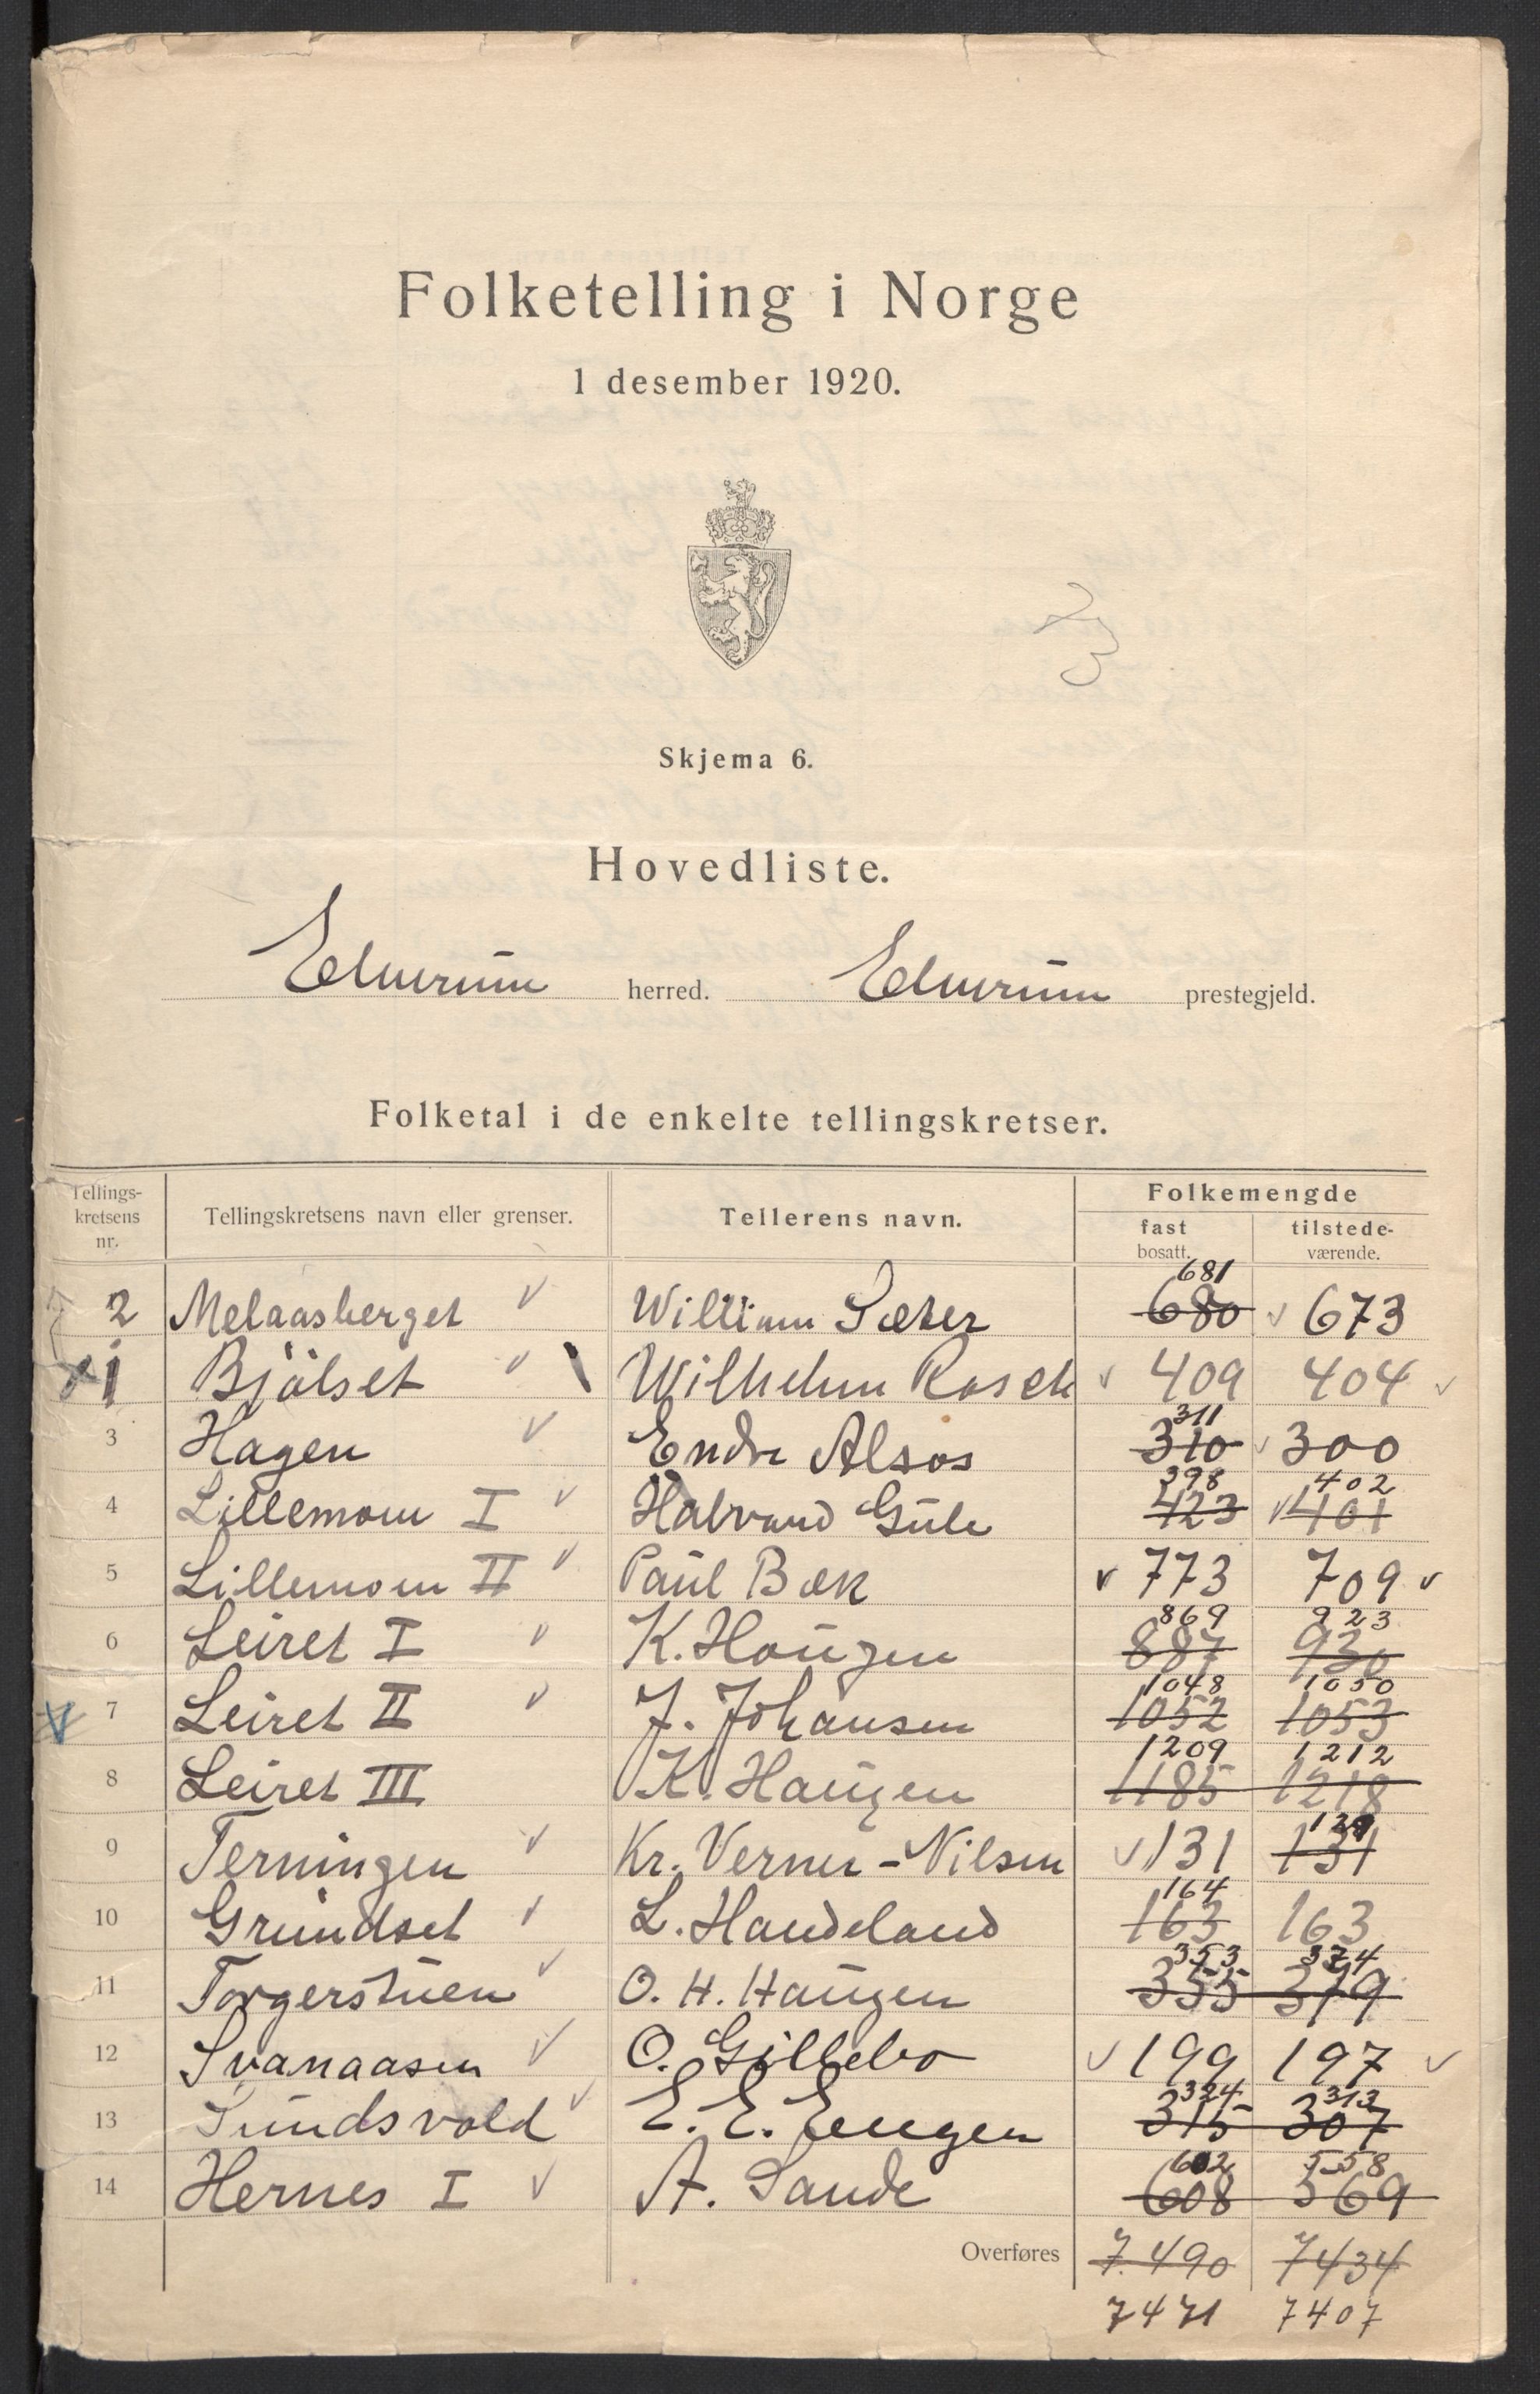 Folketelling i Norge
1 desember 1920.
23
Skjema 6.
Hovedliste.
Elverum herred. Elverum prestegjeld.
Folketal i de enkelte tellingskretser.
Tellings-kretsens nr. Tellingskretsens navn eller grenser. Tellerens navn. Folkemengde
fast bosatt. tilstede-værende.
681
2 Melaasberget William Sæter 680 673
1 Bjölset Wilhelm Rosch 409 404
311
3 Hagen Endre Alsos 310 300
398 402
4 Lillemoen I Halvard Gule 423 401
5 Lillemoen II Paul Bæk 773 709
869 923
6 Leiret I K. Haugen 887 930
1048 1050
7 Leiret II J. Johansen 1052 1053
1209 1212
8 Leiret III K. Haugen 1185 1218
129
9 Terningen Kr. Verner-Nilsen 131 131
164
10 Grundset L. Handeland 163 163
353 374
11 Torgerstuen O. H. Haugen 355 379
12 Svanaasen O. Gillebo 199 197
324 313
13 Sundsvold E. E. Engen 315 307
602 558
14 Hernes I A. Sande 608 569
Overføres 7.490 7434
7471 7407